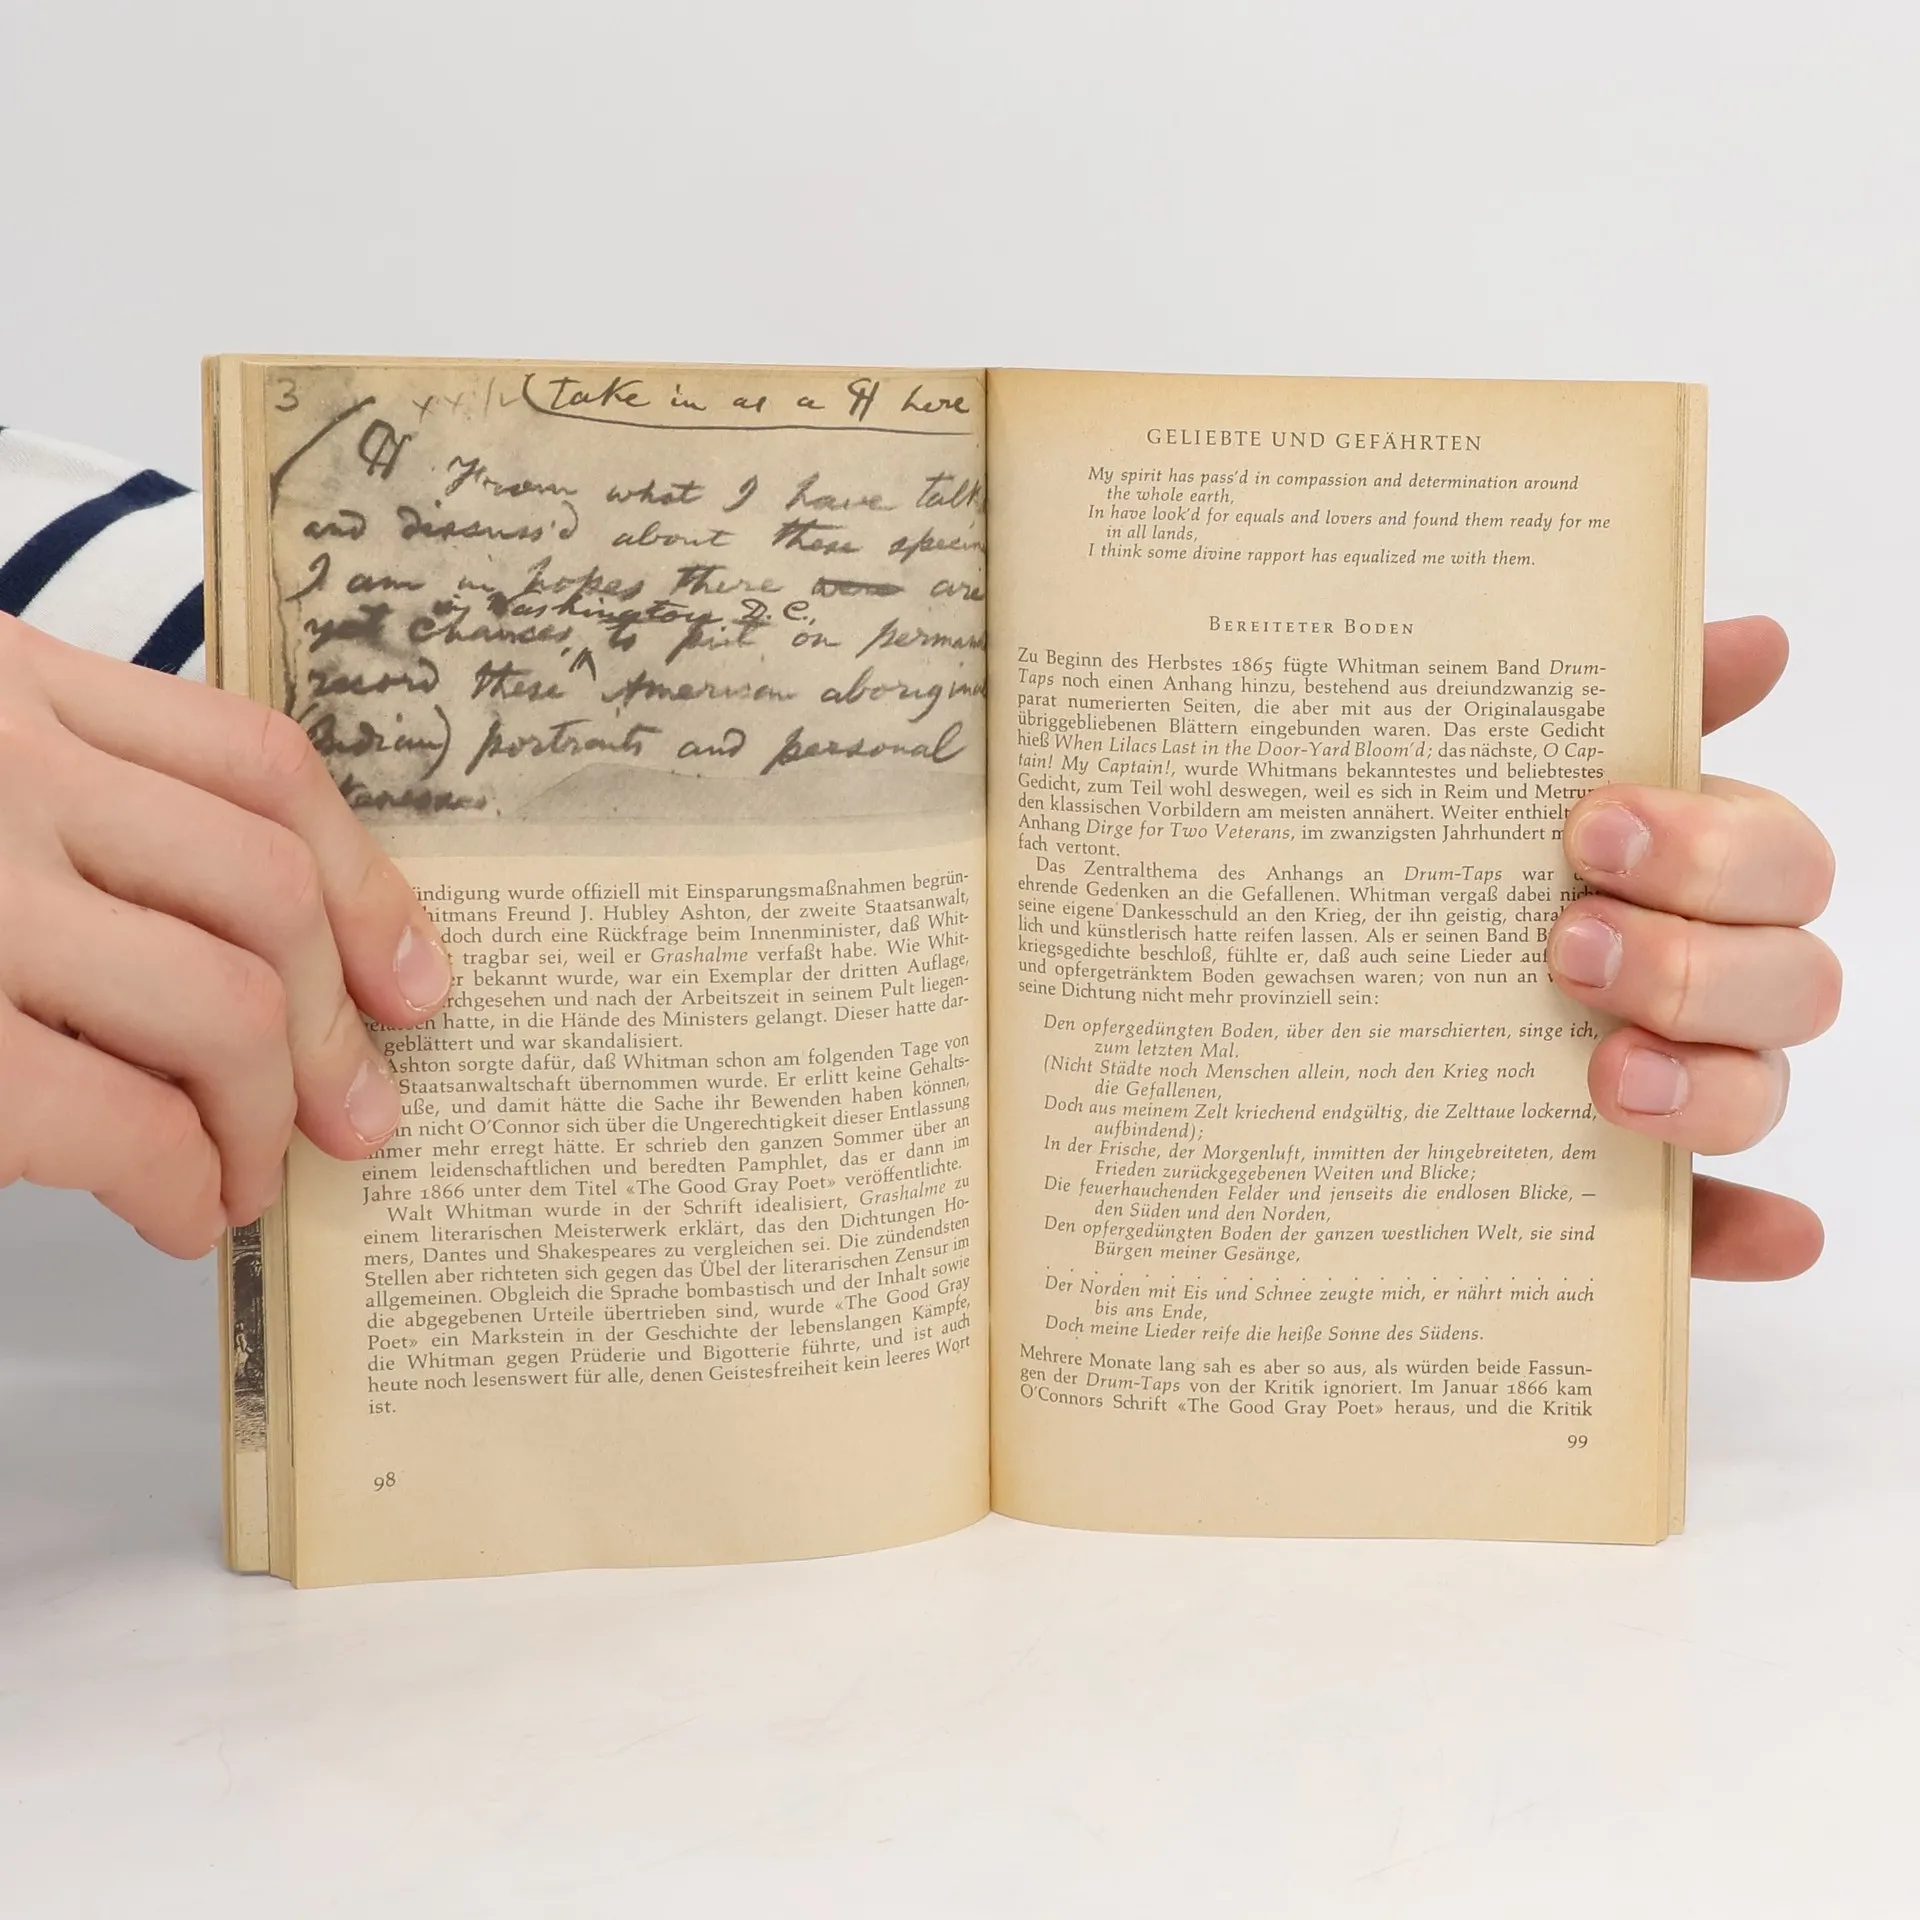 3
(take in as a ¶ here
¶ From what I have talk
and discuss'd about these specim
I am in hopes there are
in Washington D. C.,
yet chances, to put on perman
record these American aborigina
(Indian) portraits and personal
ündigung wurde offiziell mit Einsparungsmaßnahmen begrün-
hitmans Freund J. Hubley Ashton, der zweite Staatsanwalt,
doch durch eine Rückfrage beim Innenminister, daß Whit-
t tragbar sei, weil er Grashalme verfaßt habe. Wie Whit-
er bekannt wurde, war ein Exemplar der dritten Auflage,
rchgesehen und nach der Arbeitszeit in seinem Pult liegen-
hatte, in die Hände des Ministers gelangt. Dieser hatte dar-
geblättert und war skandalisiert.
Ashton sorgte dafür, daß Whitman schon am folgenden Tage von
Staatsanwaltschaft übernommen wurde. Er erlitt keine Gehalts-
uße, und damit hätte die Sache ihr Bewenden haben können,
nn nicht O'Connor sich über die Ungerechtigkeit dieser Entlassung
immer mehr erregt hätte. Er schrieb den ganzen Sommer über an
einem leidenschaftlichen und beredten Pamphlet, das er dann im
Jahre 1866 unter dem Titel «The Good Gray Poet» veröffentlichte.
Walt Whitman wurde in der Schrift idealisiert, Grashalme zu
einem literarischen Meisterwerk erklärt, das den Dichtungen Ho-
mers, Dantes und Shakespeares zu vergleichen sei. Die zündendsten
Stellen aber richteten sich gegen das Übel der literarischen Zensur im
allgemeinen. Obgleich die Sprache bombastisch und der Inhalt sowie
die abgegebenen Urteile übertrieben sind, wurde «The Good Gray
Poet» ein Markstein in der Geschichte der lebenslangen Kämpfe,
die Whitman gegen Prüderie und Bigotterie führte, und ist auch
heute noch lesenswert für alle, denen Geistesfreiheit kein leeres Wort
ist.
98
GELIEBTE UND GEFÄHRTEN
My spirit has pass'd in compassion and determination around
the whole earth,
In have look'd for equals and lovers and found them ready for me
in all lands,
I think some divine rapport has equalized me with them.
BEREITETER BODEN
Zu Beginn des Herbstes 1865 fügte Whitman seinem Band Drum-
Taps noch einen Anhang hinzu, bestehend aus dreiundzwanzig se-
parat numerierten Seiten, die aber mit aus der Originalausgabe
übriggebliebenen Blättern eingebunden waren. Das erste Gedicht
hieß When Lilacs Last in the Door-Yard Bloom'd; das nächste, O Cap-
tain! My Captain!, wurde Whitmans bekanntestes und beliebtestes
Gedicht, zum Teil wohl deswegen, weil es sich in Reim und Metrum
den klassischen Vorbildern am meisten annähert. Weiter enthielt
Anhang Dirge for Two Veterans, im zwanzigsten Jahrhundert m
fach vertont.
Das Zentralthema des Anhangs an Drum-Taps war
ehrende Gedenken an die Gefallenen. Whitman vergaß dabei nicht
seine eigene Dankesschuld an den Krieg, der ihn geistig, chara
lich und künstlerisch hatte reifen lassen. Als er seinen Band B
kriegsgedichte beschloß, fühlte er, daß auch seine Lieder auf
und opfergetränktem Boden gewachsen waren; von nun an
seine Dichtung nicht mehr provinziell sein:
Den opfergedüngten Boden, über den sie marschierten, singe ich,
zum letzten Mal.
(Nicht Städte noch Menschen allein, noch den Krieg noch
die Gefallenen,
Doch aus meinem Zelt kriechend endgültig, die Zelttaue lockernd,
aufbindend);
In der Frische, der Morgenluft, inmitten der hingebreiteten, dem
Frieden zurückgegebenen Weiten und Blicke;
Die feuerhauchenden Felder und jenseits die endlosen Blicke, —
den Süden und den Norden,
Den opfergedüngten Boden der ganzen westlichen Welt, sie sind
Bürgen meiner Gesänge,
. . . . . . . . . . . . . . . .
Der Norden mit Eis und Schnee zeugte mich, er nährt mich auch
bis ans Ende,
Doch meine Lieder reife die heiße Sonne des Südens.
Mehrere Monate lang sah es aber so aus, als würden beide Fassun-
gen der Drum-Taps von der Kritik ignoriert. Im Januar 1866 kam
O'Connors Schrift «The Good Gray Poet» heraus, und die Kritik
99